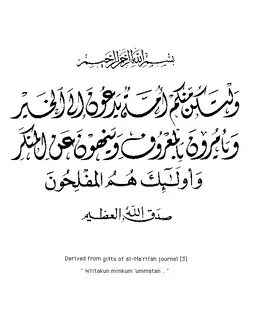 بسم الله الرحمن الرحيم
ولتكن منكم أمة يدعون إلى الخير
ويأمرون بالمعروف وينهون عن المنكر
وأولئك هم المفلحون
صدق الله العظيم
Derived from gifts of al-Ma'rifah journal [3]
" Wlitakun minkum 'ummatan .. "